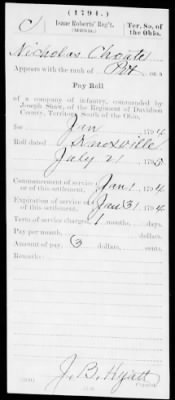 C
(1794.)
Isaac Roberts' Reg't.
(MILITIA.)
Ter. So. of
the Ohio.
Nicholas Choate
Appears with the rank of Pvt. on a
Pay Roll
of a company of infantry, commanded by
Joseph Shaw, of the Regiment of Davidson
County, Territory South of the Ohio,
for Jan 1794
Roll dated Knoxville
July 21 1795
Commencement of service
or of this settlement, Jan 1, 1794
Expiration of service
of this settlement, Jan 31, 1794
Term of service charged, 1 months, days.
Pay per month, dollars.
Amount of pay, 3 dollars, cents.
Remarks:
J. B. Hyatt
Copyist.